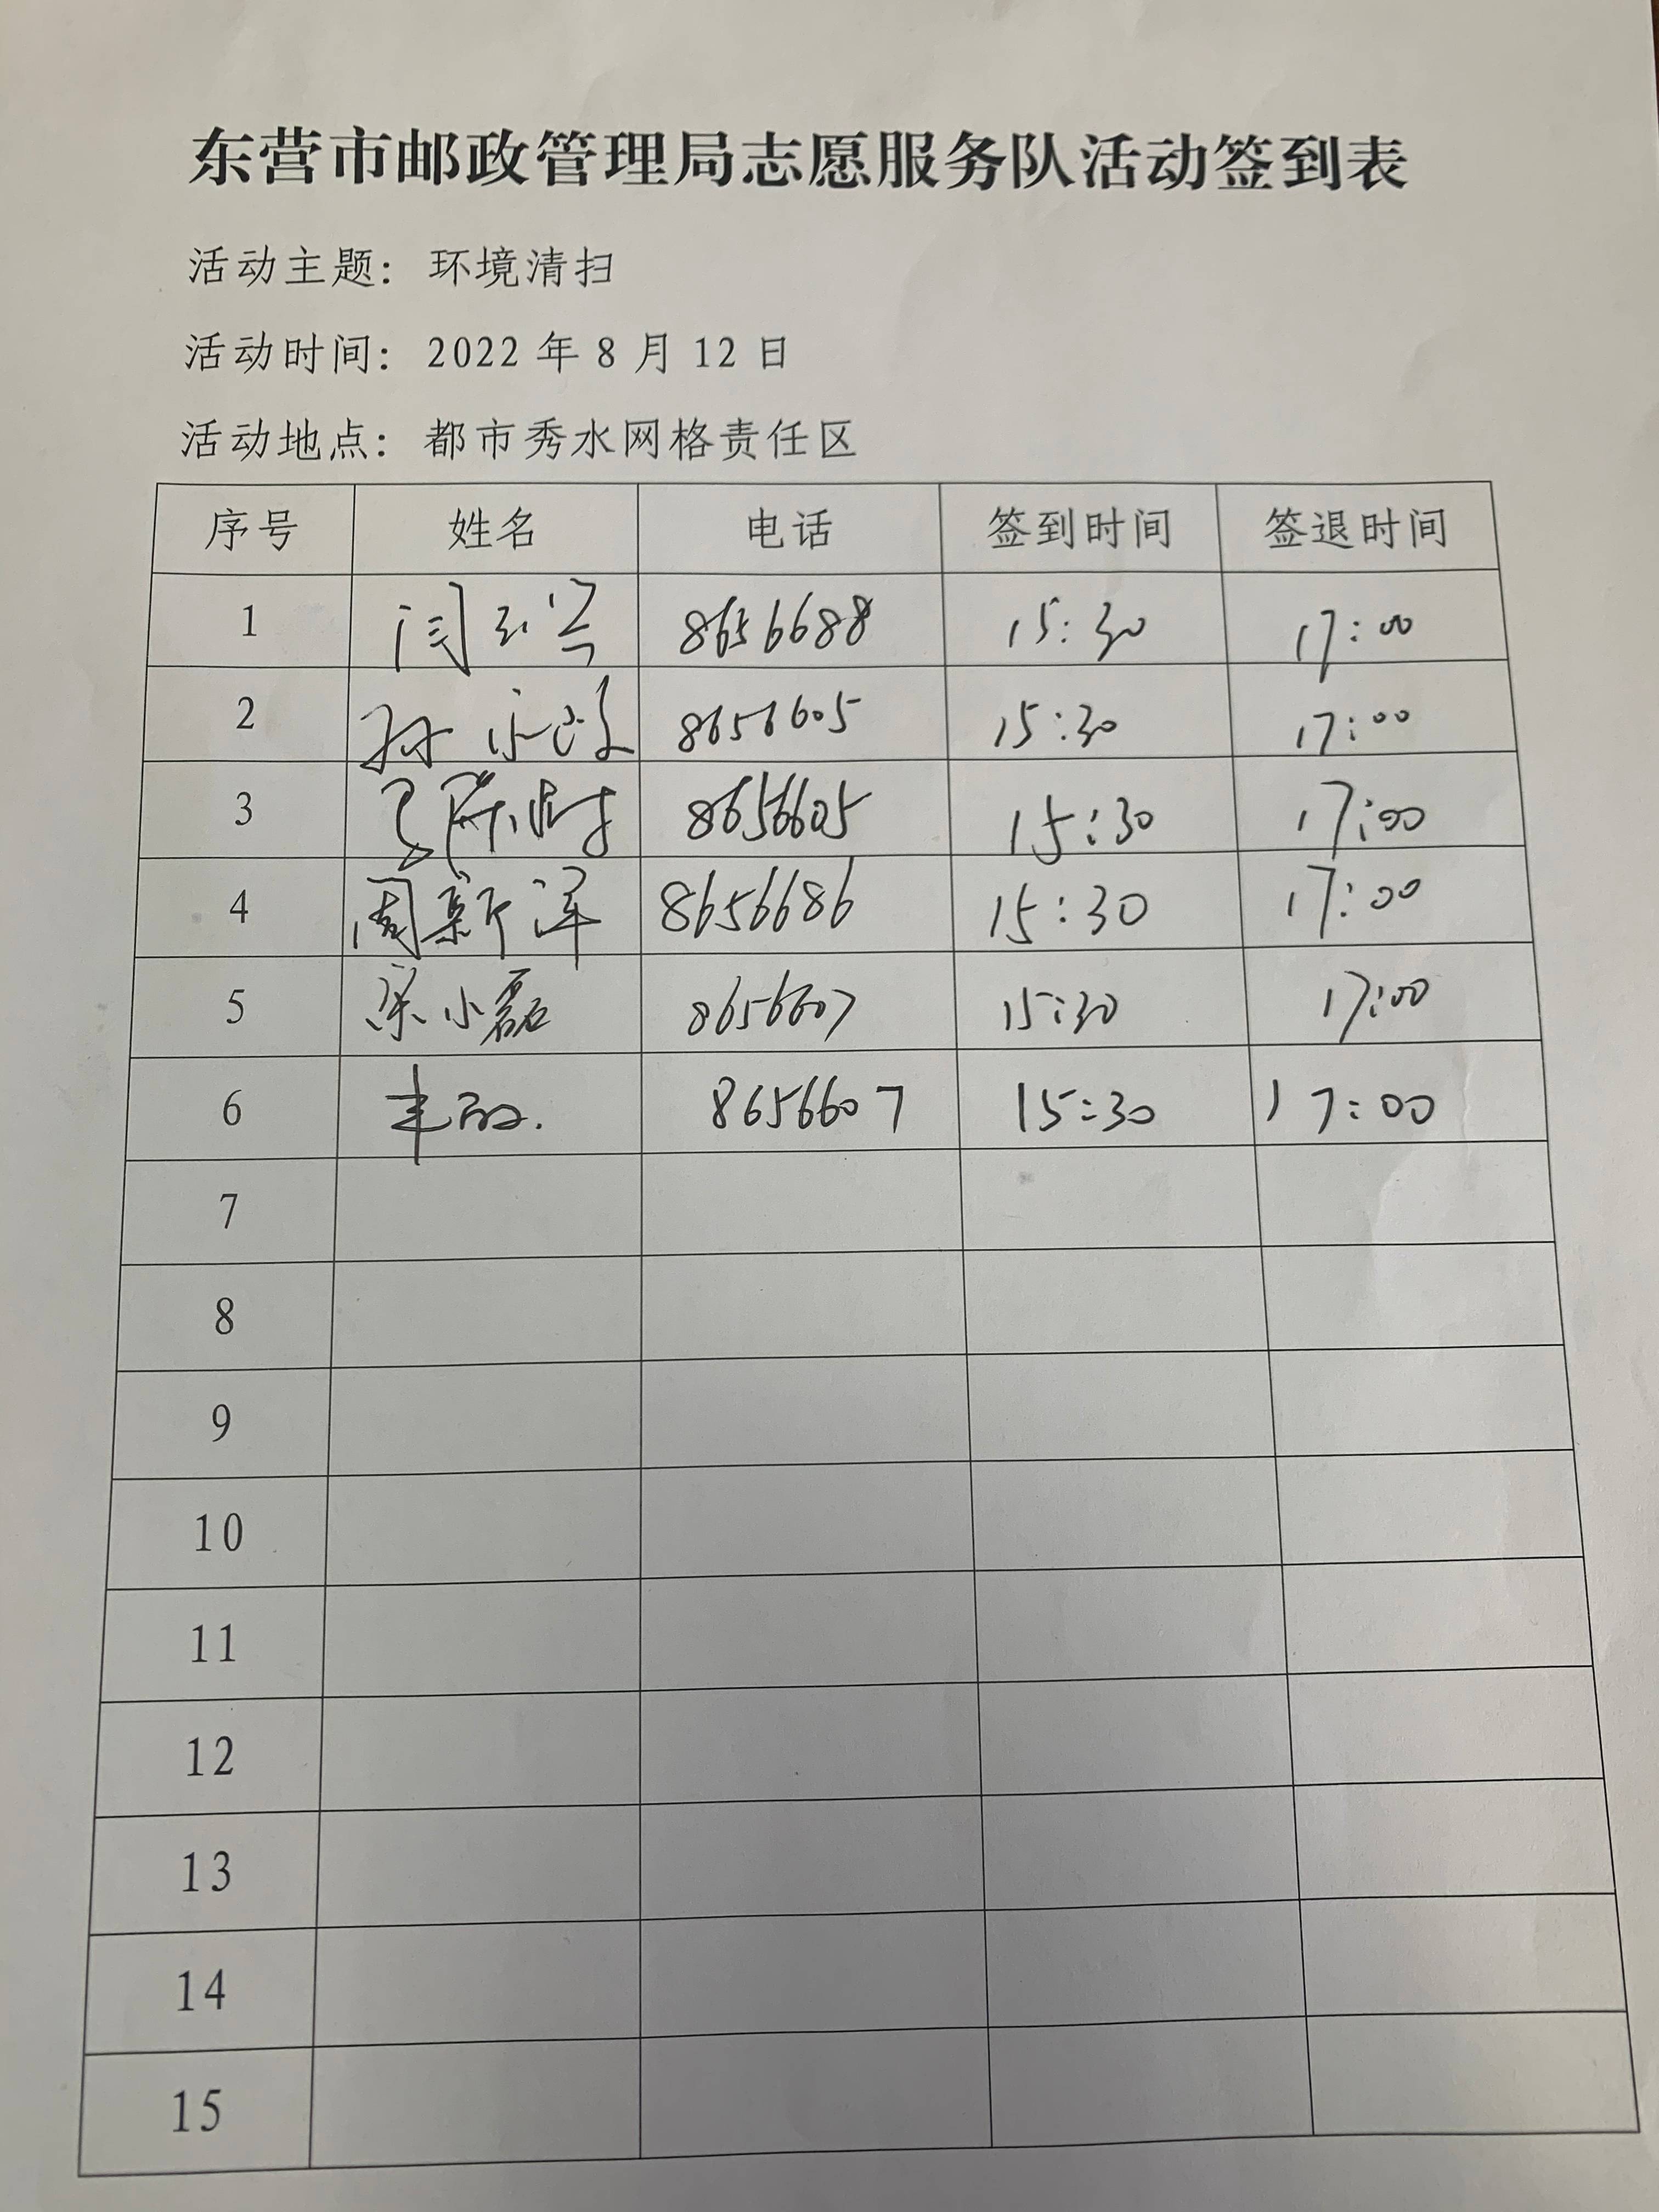 东营市邮政管理局志愿服务队活动签到表
活动主题：环境清扫
活动时间：2022 年 8 月 12 日
活动地点：都市秀水网格责任区
序号 姓名 电话 签到时间 签退时间
1 闫 8656688 15:30 17:00
2 孙 8656605 15:30 17:00
3 8656605 15:30 17:00
4 周新洋 8656686 15:30 17:00
5 宋小磊 8656607 15:30 17:00
6 8656607 15:30 17:00
7
8
9
10
11
12
13
14
15